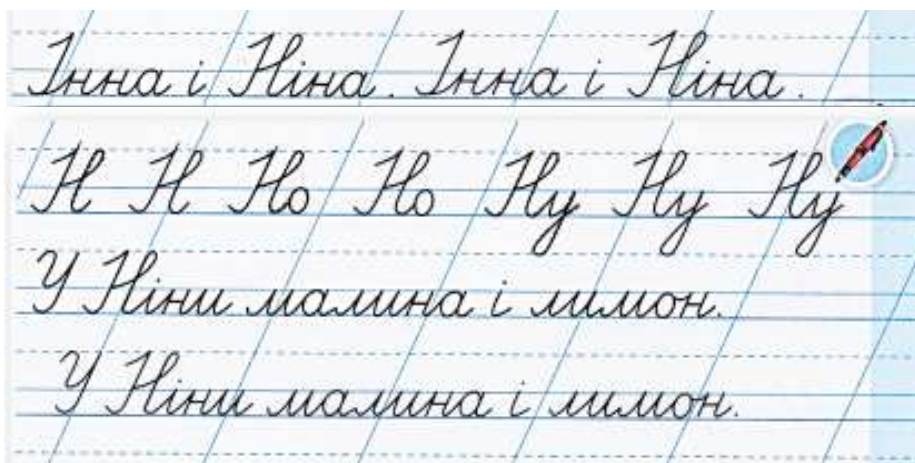 Інна і Ніна. Інна і Ніна.
Н Н Но Но Ну Ну Ну
У Ніни малина і лимон.
У Ніни малина і лимон.